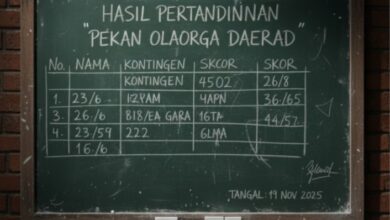 HASIL PERTANDINNAN
"PEKAN OLAORGA DAERAD"
No. NAMA KONTINGEN SKCOR SKOR
KONTINGEN 4502 26/8
1. 23/6 12PAM 4APN 36/65
3. 26/6 818/EA GARA 16TA 44/57
4. 23/59 222 6LMA
16/6
TANGAL: 19 NOV 2025